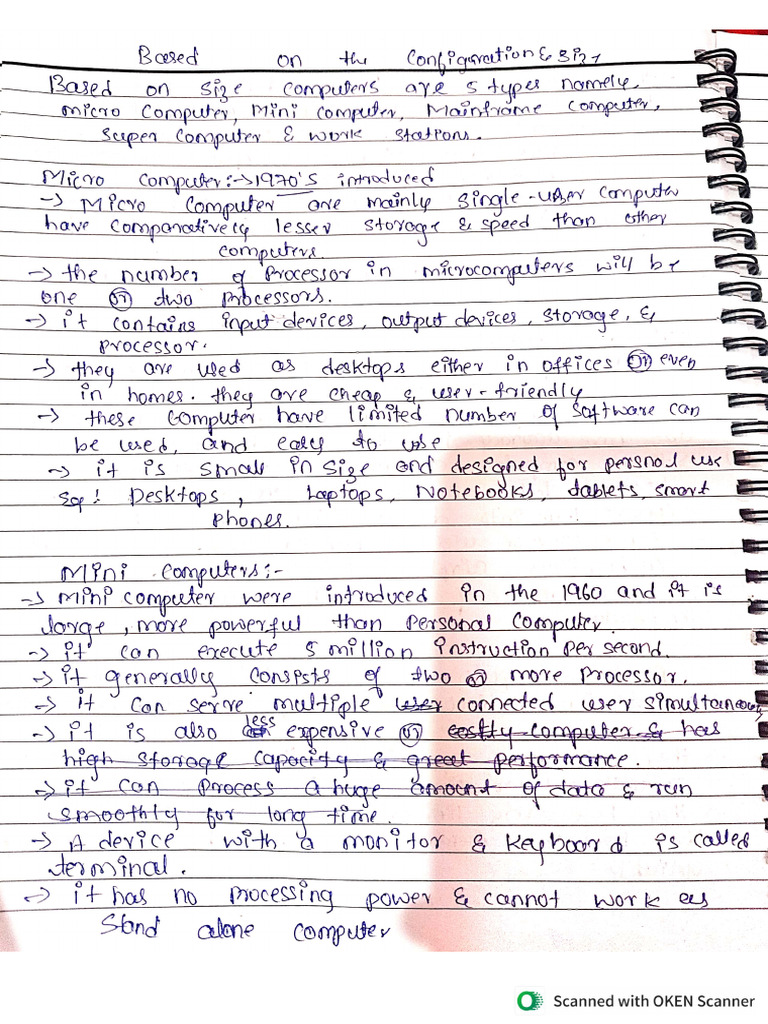 Based on the Configaration & Size
Based on size computers are 5 types namely,
micro Computer, Mini computer, Mainframe computer,
super computer & work stations.
Micro computer:→1970's introduced
→ Micro computer are mainly single-user computer
have comparatively lesser storage & speed than other
computers.
→ the number of processor in microcomputers will be
one or two processors.
→ it contains input devices, output devices, storage, &
processor.
→ they are used as desktops either in offices or even
in homes. they are cheap & user-friendly
→ these computer have limited number of software can
be used, and easy to use
→ it is small in size and designed for persnol use
Eg: Desktops, Laptops, Notebooks, tablets, smart
phones.
Mini computers:-
→ mini computer were introduced in the 1960 and it is
large, more powerful than personal computer.
→ it can execute 5 million instruction per second.
→ it generally consists of two or more processor.
→ it can serve multiple user connected user simultaneously
→ it is also less expensive or costly computer & has
high storage capacity & great performance.
→ it can process a huge amount of data & run
smoothly for long time.
→ A device with a monitor & keyboard is called
terminal.
→ it has no processing power & cannot work as
stand alone computer
Scanned with OKEN Scanner